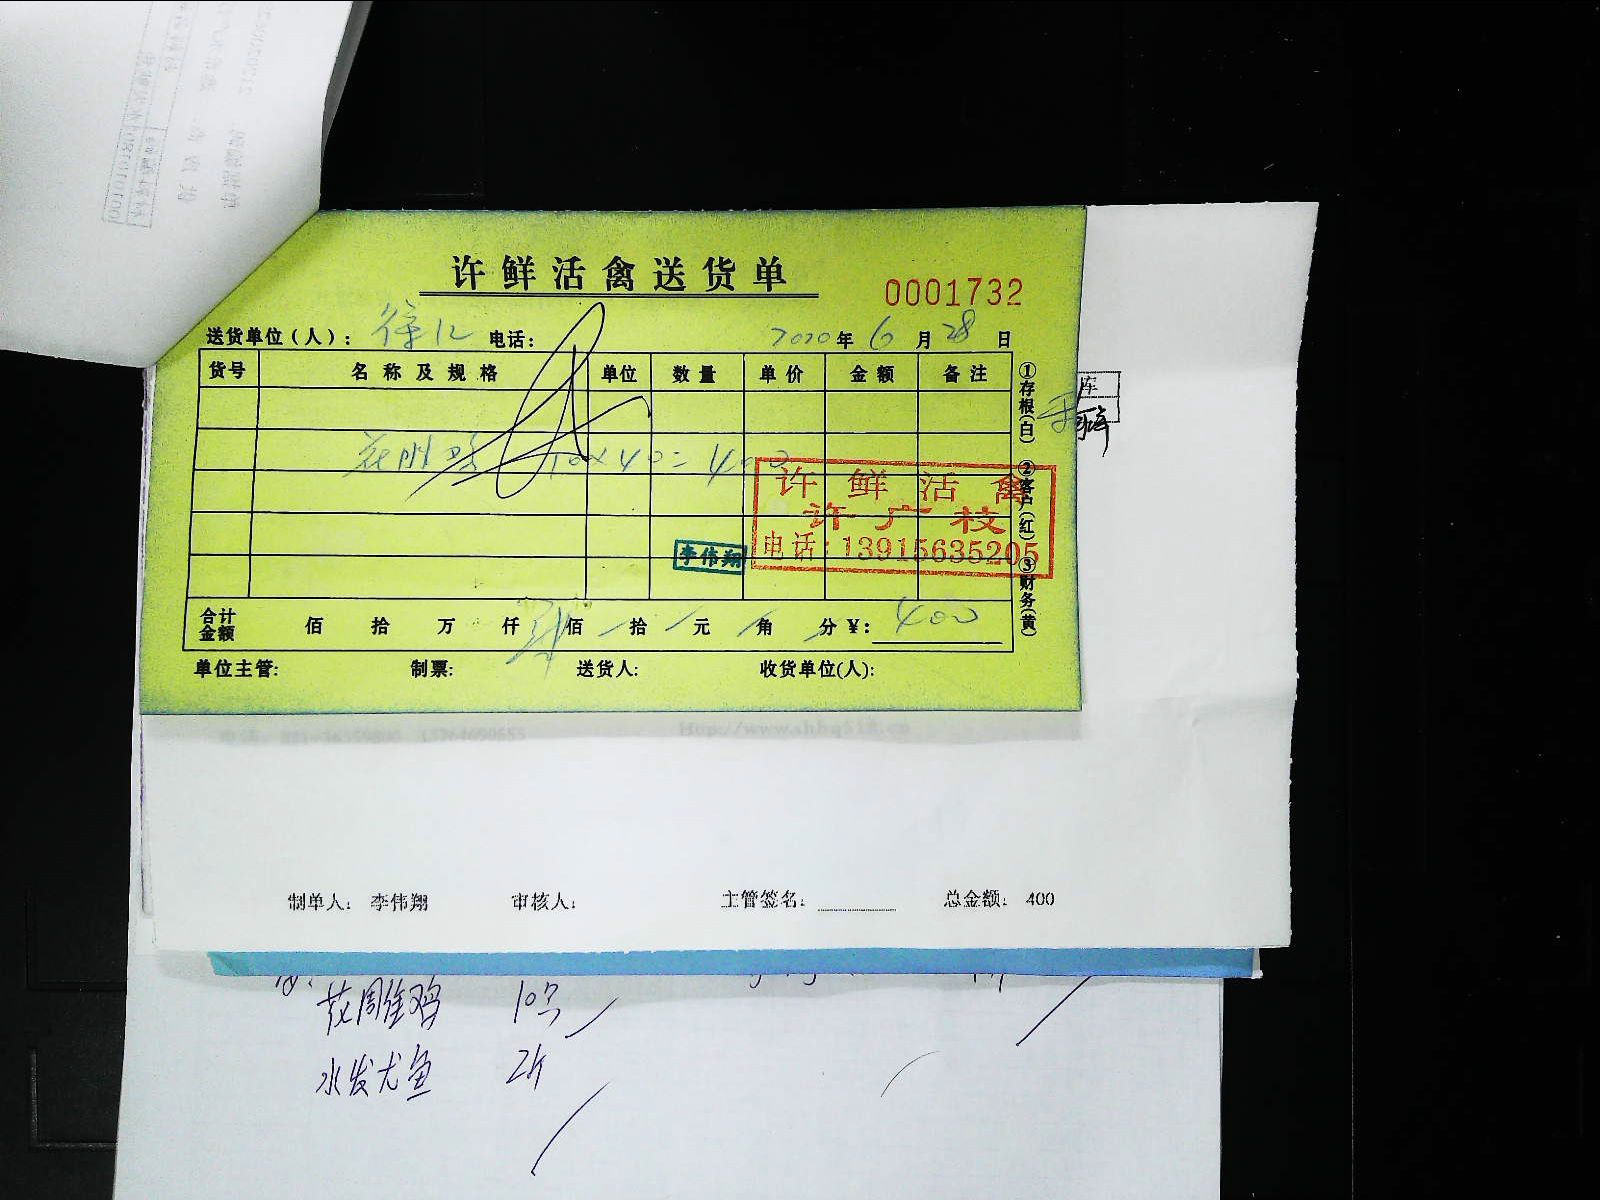 许鲜活禽送货单
0001732
送货单位(人): 电话: 2020年6月28日
货号 名称及规格 单位 数量 单价 金额 备注
10×40=400
许鲜活禽
许广枝
电话:13915635205
李伟翔
合计金额 佰 拾 万 仟 佰 拾 元 角 分 ¥: 400
单位主管: 制票: 送货人: 收货单位(人):
①存根(白) ②客户(红) ③财务(黄)
库
制单人: 李伟翔 审核人: 主管签名: 总金额: 400
花雕鸡 10只
水发尤鱼 2斤